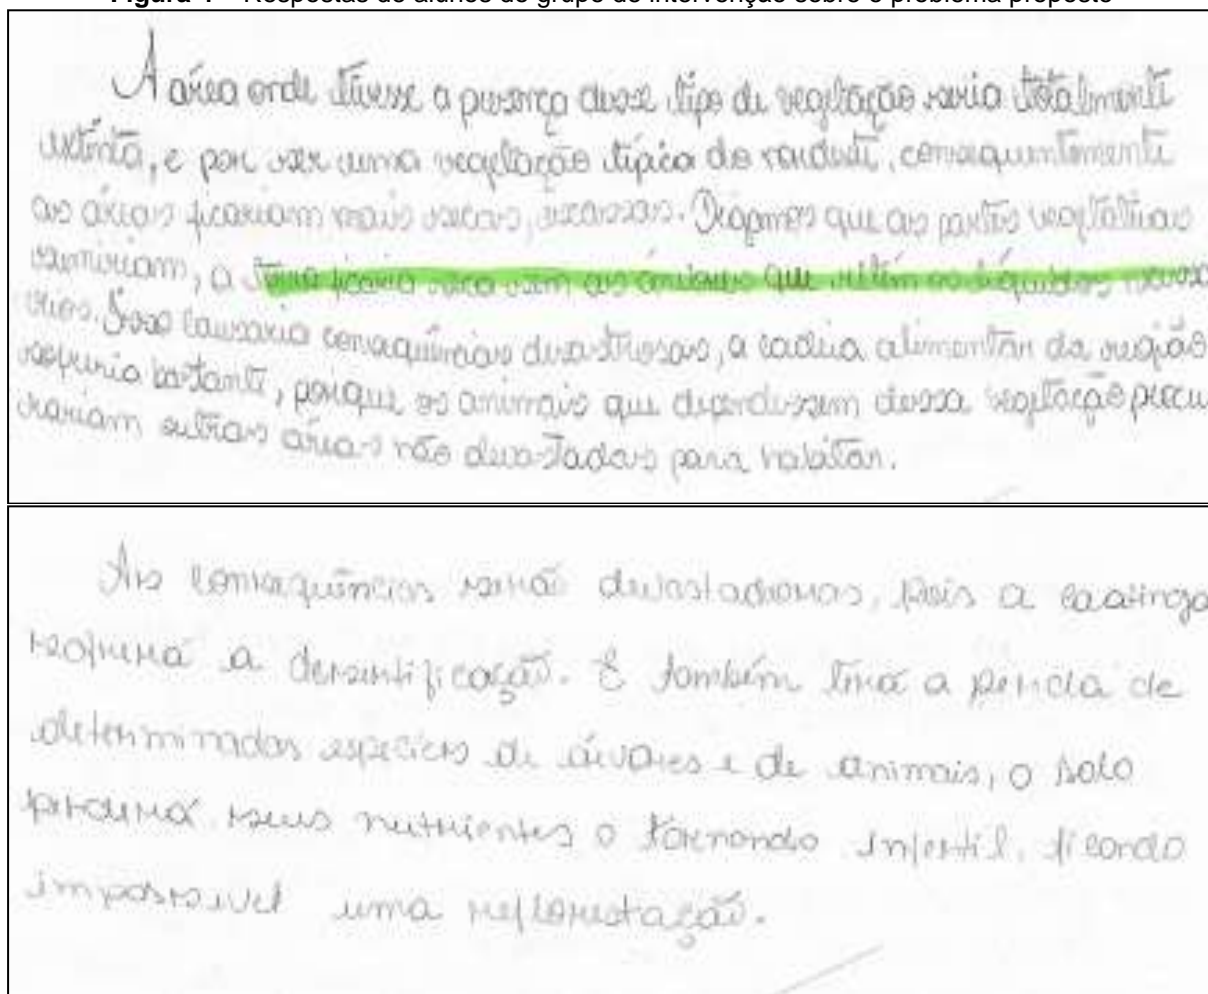 Respostas de alunos do grupo de intervenção sobre o problema proposto
A área onde tivesse a presença desse tipo de vegetação seria totalmente
extinta, e por ser uma vegetação típica do nordeste, consequentemente
as áreas ficariam mais secas, escassas. Digamos que as partes vegetativas
sumiriam, a terra ficaria seca sem as árvores que retém os líquidos
Isso causaria consequências desastrosas, a cadeia alimentar da região
sofreria bastante, porque os animais que dependessem dessa vegetação procu
rariam outras áreas não devastadas para habitar.
As consequências serão devastadoras, pois a caatinga
sofrerá a desertificação. E também terá a perda de
determinadas espécies de árvores e de animais, o solo
perderá seus nutrientes o tornando infertil, ficando
impossivel uma reflorestação.